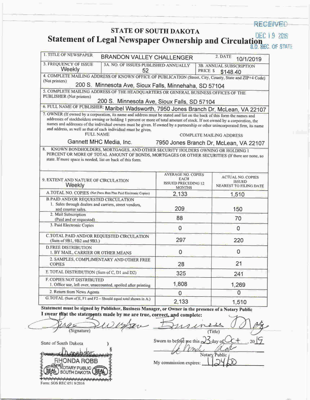 RECEIVED
DEC 19 2019
S.D. SEC. OF STATE
STATE OF SOUTH DAKOTA
Statement of Legal Newspaper Ownership and Circulation
1. TITLE OF NEWSPAPER
BRANDON VALLEY CHALLENGER
2. DATE
10/1/2019
3. FREQUENCY OF ISSUE
Weekly
3A. NO. OF ISSUES PUBLISHED ANNUALLY
52
3B. ANNUAL SUBSCRIPTION
PRICE: $ $148.40
4. COMPLETE MAILING ADDRESS OF KNOWN OFFICE OF PUBLICATION (Street, City, County, State and ZIP+4 Code)
(Not printers)
200 S. Minnesota Ave, Sioux Falls, Minnehaha, SD 57104
5. COMPLETE MAILING ADDRESS OF THE HEADQUARTERS OR GENERAL BUSINESS OFFICES OF THE
PUBLISHER (Not printer)
200 S. Minnesota Ave, Sioux Falls, SD 57104
6. FULL NAME OF PUBLISHER: Maribel Wadsworth, 7950 Jones Branch Dr, McLean, VA 22107
7. OWNER (If owned by a corporation, its name and address must be stated and
FULL NAME
COMPLETE MAILING ADDRESS
Gannett MHC Media, Inc.
7950 Jones Branch Dr, McLean, VA 22107
8. KNOWN BONDHOLDERS, MORTGAGEES, AND OTHER SECURITY HOLDERS OWNING OR HOLDING 1
PERCENT OR MORE OF TOTAL AMOUNT OF BONDS, MORTGAGES OR OTHER SECURITIES (If there are none, so
state. If more space is needed, list on back of this form.
9. EXTENT AND NATURE OF CIRCULATION
Weekly
AVERAGE NO. COPIES
EACH
ISSUED PRECEDING 12
MONTHS
ACTUAL NO. COPIES
ISSUED
NEAREST TO FILING DATE
A. TOTAL NO. COPIES
2,133
1,510
B. PAID AND/OR REQUESTED CIRCULATION
1. Sales through dealers and carriers, street vendors,
and counter sales.
209
150
2. Mail Subscription
(Paid and or requested)
88
70
3. Paid Electronic Copies
0
0
C. TOTAL PAID AND/OR REQUESTED CIRCULATION
(Sum of 9B1, 9B2 and 9B3.)
297
220
D. FREE DISTRIBUTION
1. BY MAIL, CARRIER OR OTHER MEANS
0
0
2. SAMPLES, COMPLIMENTARY AND OTHER FREE
COPIES
28
21
E. TOTAL DISTRIBUTION (Sum of C, D1 and D2)
325
241
F. COPIES NOT DISTRIBUTED
1. Office use, left over, unaccounted, spoiled after printing
1,808
1,269
2. Return from News Agents
0
0
G. TOTAL (Sum of E, F1 and F2 - Should equal total shown in A.)
2,133
1,510
Statement must be signed by Publisher, Business Manager, or Owner in the presence of a Notary Public
I swear that the statements made by me are true, correct, and complete:
Business Mgr
(Signature)
(Title)
State of South Dakota
Sworn to before me this 23 day of Oct 2019
Minnehaha
Notary Public
RHONDA ROBB
NOTARY PUBLIC
SOUTH DAKOTA
My commission expires: